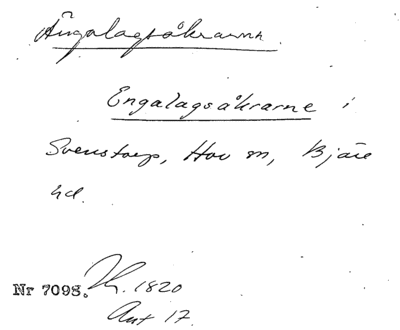 Ängalagsåkrarna.
Engalagsåkrarne i
Svenstorp, Hov sn, Bjäre
hd.
Nr 7098. Th. 1820
Ant 17.